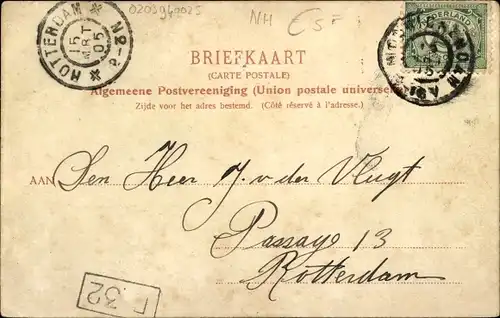 0203940025
NH
ROTTERDAM
N 2-8
15
MRT
05
NEDERLAND
BRIEFKAART
(CARTE POSTALE)
Algemeene Postvereeniging (Union postale universe
Zijde voor het adres bestemd. (Côté réservé à l'adresse.)
AAN Den Heer J. v. der Vlugt
Passage 13
Rotterdam
32